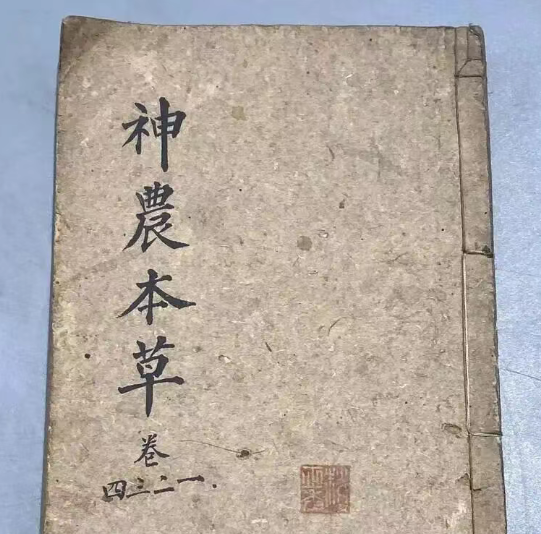 神農本草
卷
一二三四